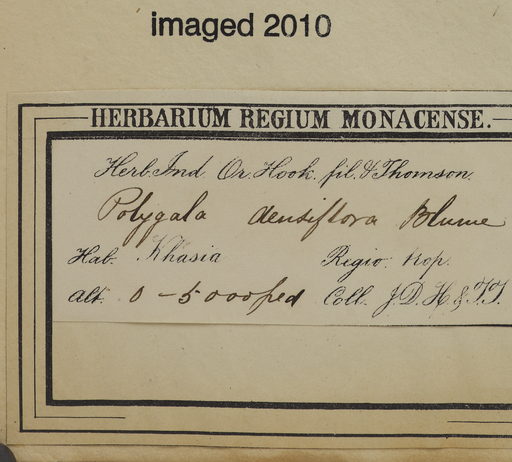 imaged 2010
HERBARIUM REGIUM MONACENSE.
Herb. Ind. Or. Hook. fil. & Thomson.
Polygala densiflora Blume
Hab. Khasia Regio: trop.
Alt. 0 - 5000 ped Coll. J. D. H. & T. T.